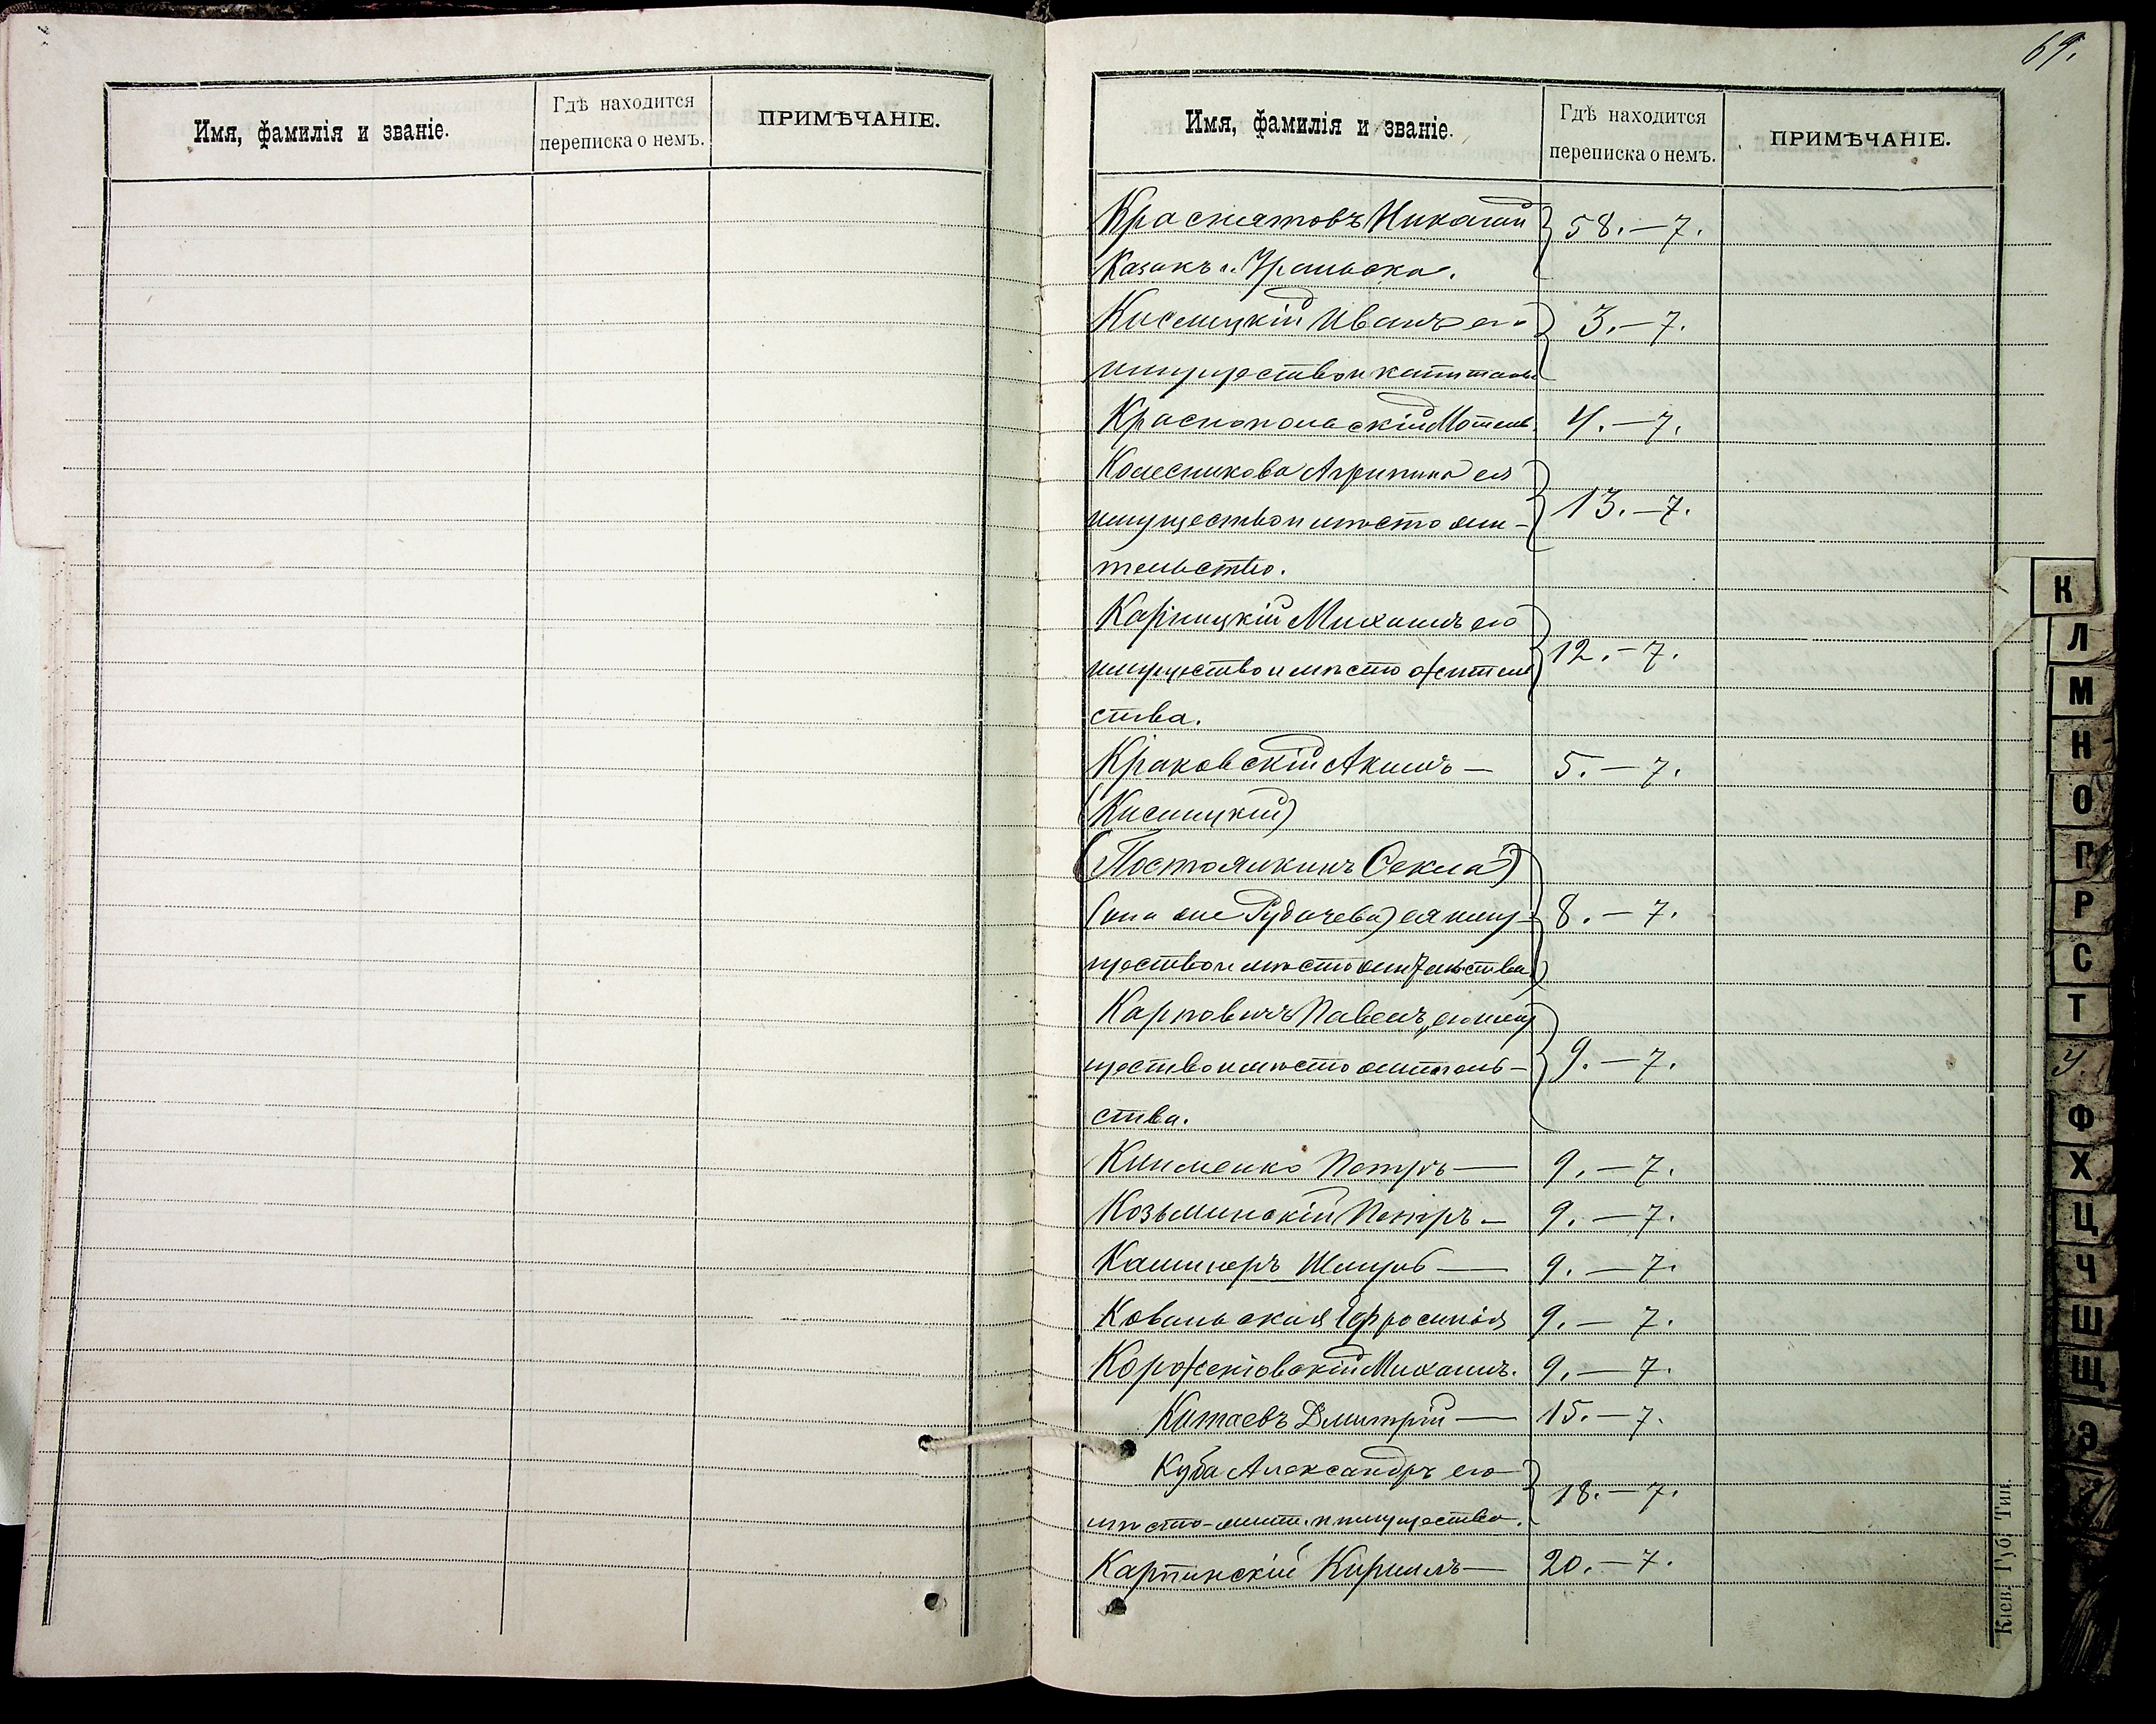 Имя, фамилія и званіе.
Гдѣ находится
переписка о немъ.
ПРИМѢЧАНІЕ.
69.
Имя, фамилія и званіе.
Гдѣ находится
переписка о немъ.
ПРИМѢЧАНІЕ.
58.—7.
Казакъ г. Уральска.
Кислицкій Иванъ его
3.—7.
имущество и капиталы
Краснопольскій Мотель. 4.—7.
Колесникова Агрипина ея
имущество и мѣсто жи-
13.—7.
тельство.
Карницкій Михаилъ его
имущество и мѣсто жител
12.—7.
ства.
Краковскій Акимъ — 5.—7.
(Кислицкій)
(Постоялкинъ Фекла)
(она же Рудачева) ея иму-
8.—7.
щество и мѣсто жительства)
Карповичъ Павелъ, его иму
щество и мѣсто житель-
9.—7.
ства.
Клименко Петръ — 9.—7.
Козьминскій Петръ — 9.—7.
Кашперъ Шмуль — 9.—7.
Ковальская Ефросинія 9.—7.
Корженіовскій Михаилъ. 9.—7.
Китаевъ Дмитрій — 15.—7.
Куба Александръ его
18.—7.
мѣсто-жит. и имущество.
Карпинскій Кириллъ — 20.—7.
Кіев. Губ. Тип.
К
Л
М
Н
О
П
Р
С
Т
У.
Ф
Х
Ц
Ч
Ш
Щ
Э